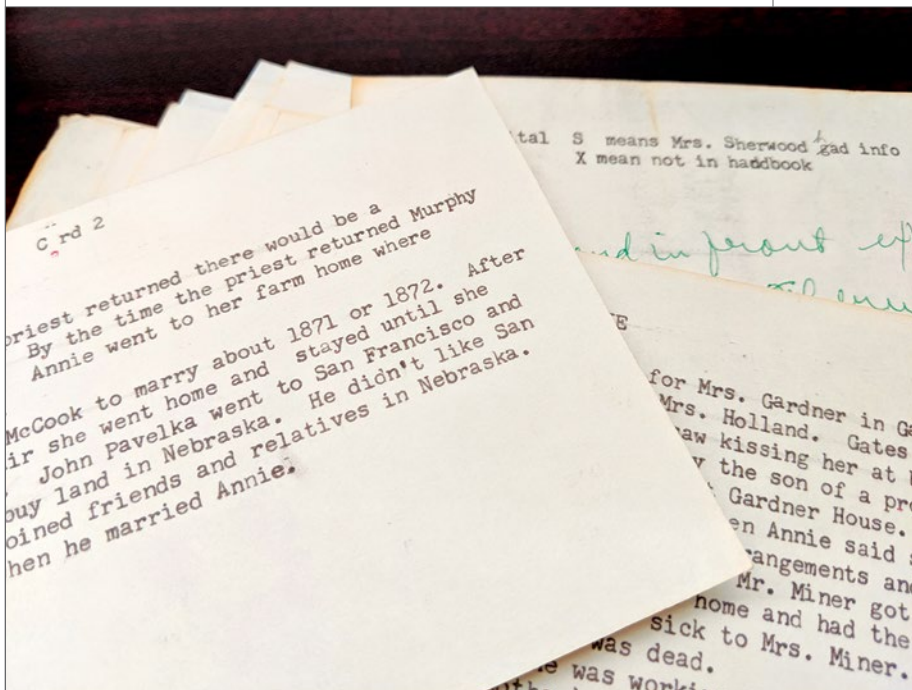 C rd 2
priest returned there would be a
By the time the priest returned Murphy
Annie went to her farm home where
McCook to marry about 1871 or 1872. After
ir she went home and stayed until she
John Pavelka went to San Francisco and
buy land in Nebraska. He didn't like San
oined friends and relatives in Nebraska.
hen he married Annie.
tal S means Mrs. Sherwood gad info
X mean not in haddbook
nd in front of
E
for Mrs. Gardner in Ga
Mrs. Holland. Gates
aw kissing her at
y the son of a pr
Gardner House.
en Annie said s
rangements and
Mr. Miner got
home and had the
sick to Mrs. Miner.
was dead.
e was worki